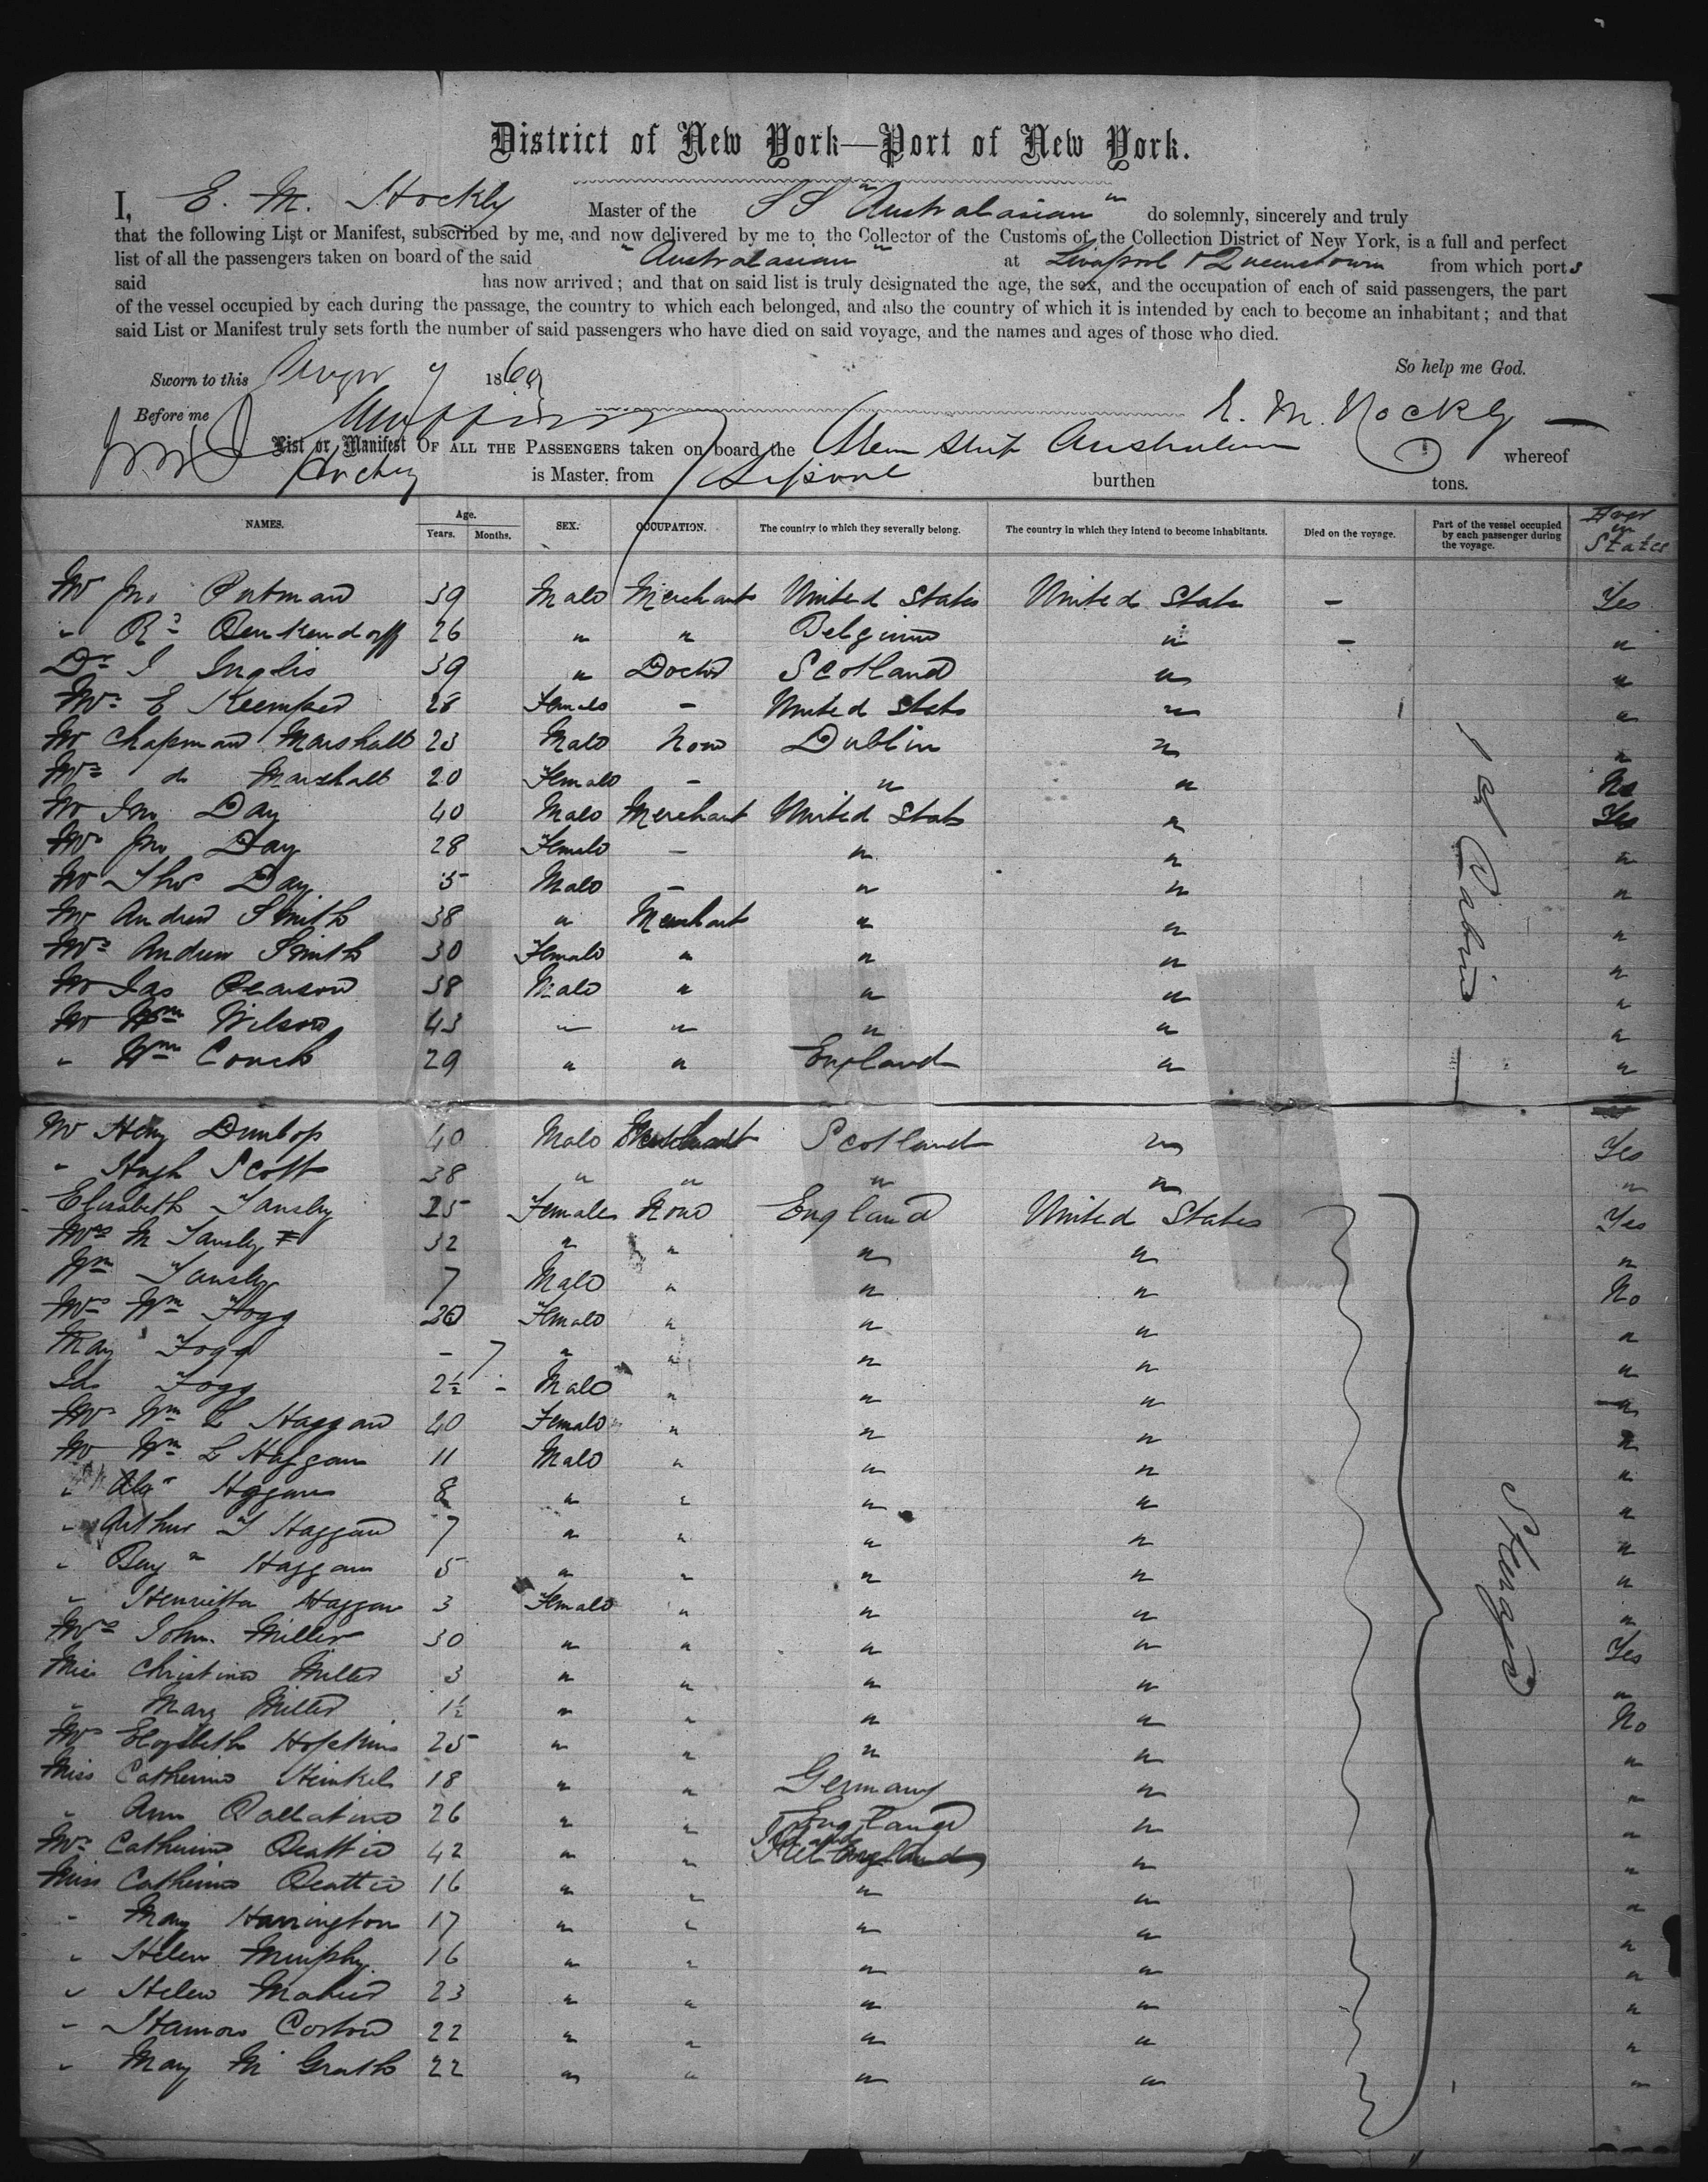 District of New York—Port of New York.
I, E. M. Hockly Master of the SS "Australasian" do solemnly, sincerely and truly
that the following List or Manifest, subscribed by me, and now delivered by me to the Collector of the Customs of the Collection District of New York, is a full and perfect
list of all the passengers taken on board of the said "Australasian" at Liverpool & Queenstown from which ports
said has now arrived; and that on said list is truly designated the age, the sex, and the occupation of each of said passengers, the part
of the vessel occupied by each during the passage, the country to which each belonged, and also the country of which it is intended by each to become an inhabitant; and that
said List or Manifest truly sets forth the number of said passengers who have died on said voyage, and the names and ages of those who died.
So help me God.
Sworn to this 9 1869
Before me E. M. Hockly
List or Manifest OF ALL THE PASSENGERS taken on board the Steam Ship Australasian whereof
is Master, from burthen tons.
NAMES. Age. Years. Months. SEX. OCCUPATION. The country to which they severally belong. The country in which they intend to become inhabitants. Died on the voyage. Part of the vessel occupied by each passenger during the voyage. Ever in States
Mr Jno Putman 39 Male Merchant United States United States – Yes
" Rd Benkendorff 26 " " Belgium " – "
Dr J Inglis 39 " Doctor Scotland " "
Mrs E Keemper 28 Female – United States " "
Mr Chapman Marshall 23 Male None Dublin " "
Mrs do Marshall 20 Female – " " No
Mr Jno Day 40 Male Merchant United States " Yes
Mrs Jno Day 28 Female – " " "
Mr Thos Day 5 Male – " " "
Mr Andrew Smith 38 " Merchant " " "
Mrs Andrew Smith 30 Female " " " "
Mr Jas Pearson 38 Male " " " "
Mr Wm Wilson 43 " " " " "
" Wm Couch 29 " " England " "
1st Cabin
Mr Heny Dunlop 40 Male Merchant Scotland " Yes
" Hugh Scott 38 " " " " "
Elisabeth Tansley 25 Female None England United States Yes
Mrs M Tansley 32 " " " " "
Wm Tansley 7 Male " " " No
Mrs Wm Fogg 20 Female " " " "
May Fogg – 7 " " " " "
Jas Fogg 2½ – Male " " " "
Mrs Wm L Haggan 40 Female " " " "
Mr Wm L Haggan 11 Male " " " "
" Alx Haggan 8 " " " " "
" Arthur J Haggan 7 " " " " "
" Benj n Haggan 5 " " " " "
" Henrietta Haggan 3 Female " " " "
Mrs John Miller 30 " " " " Yes
Miss Christina Miller 3 " " " " "
" Mary Miller 1½ " " " " No
Mrs Elizabeth Hopkins 25 " " " " "
Miss Catherine Heinkel 18 " " Germany " "
" Ann Ballatine 26 " " England " "
Mrs Catherine Beattie 42 " " Ireland " "
Miss Catherine Beattie 16 " " " " "
" Mary Harrington 17 " " " " "
" Helen Murphy 16 " " " " "
" Helen Maher 23 " " " " "
" Hannora 22 " " " " "
" May McGrath 22 " " " " "
Steerage